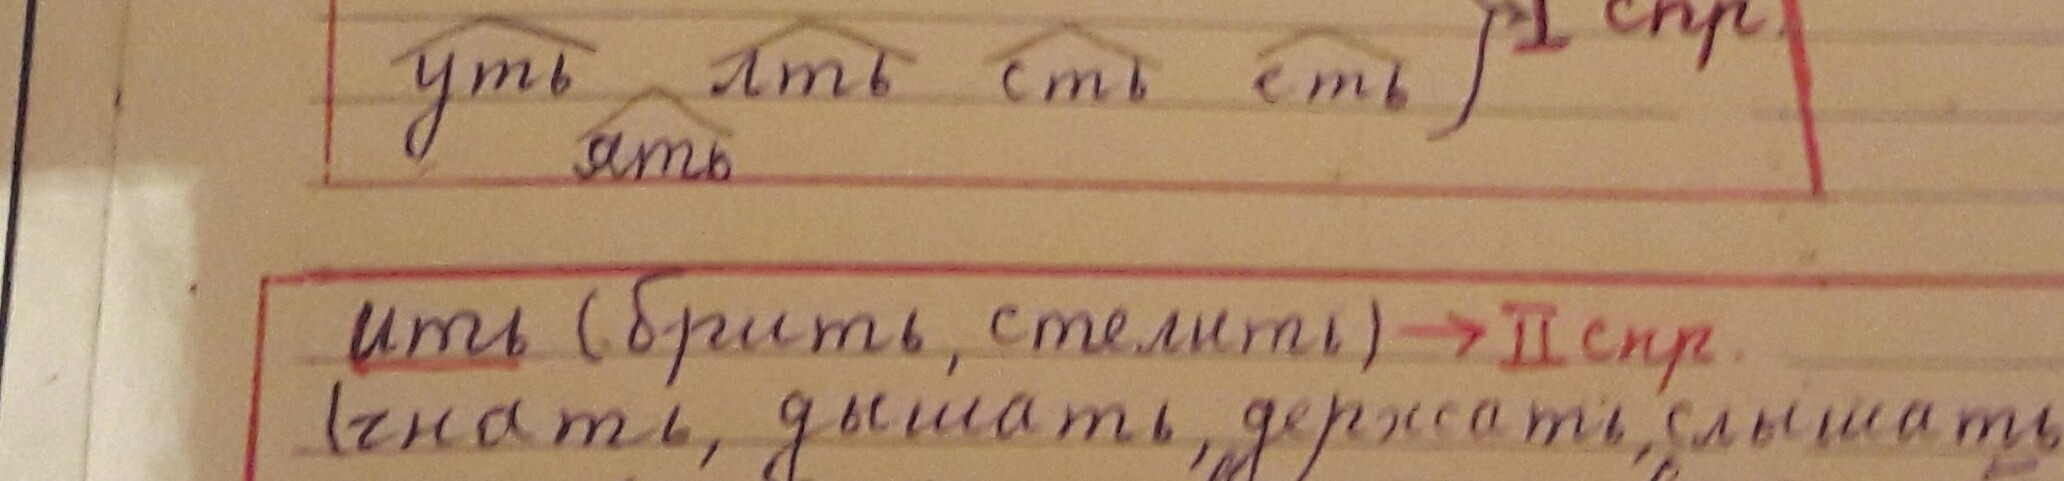 уть ять сть еть I спр.
ять
ить (брить, стелить) → II спр.
(гнать, дышать, держать, слышать